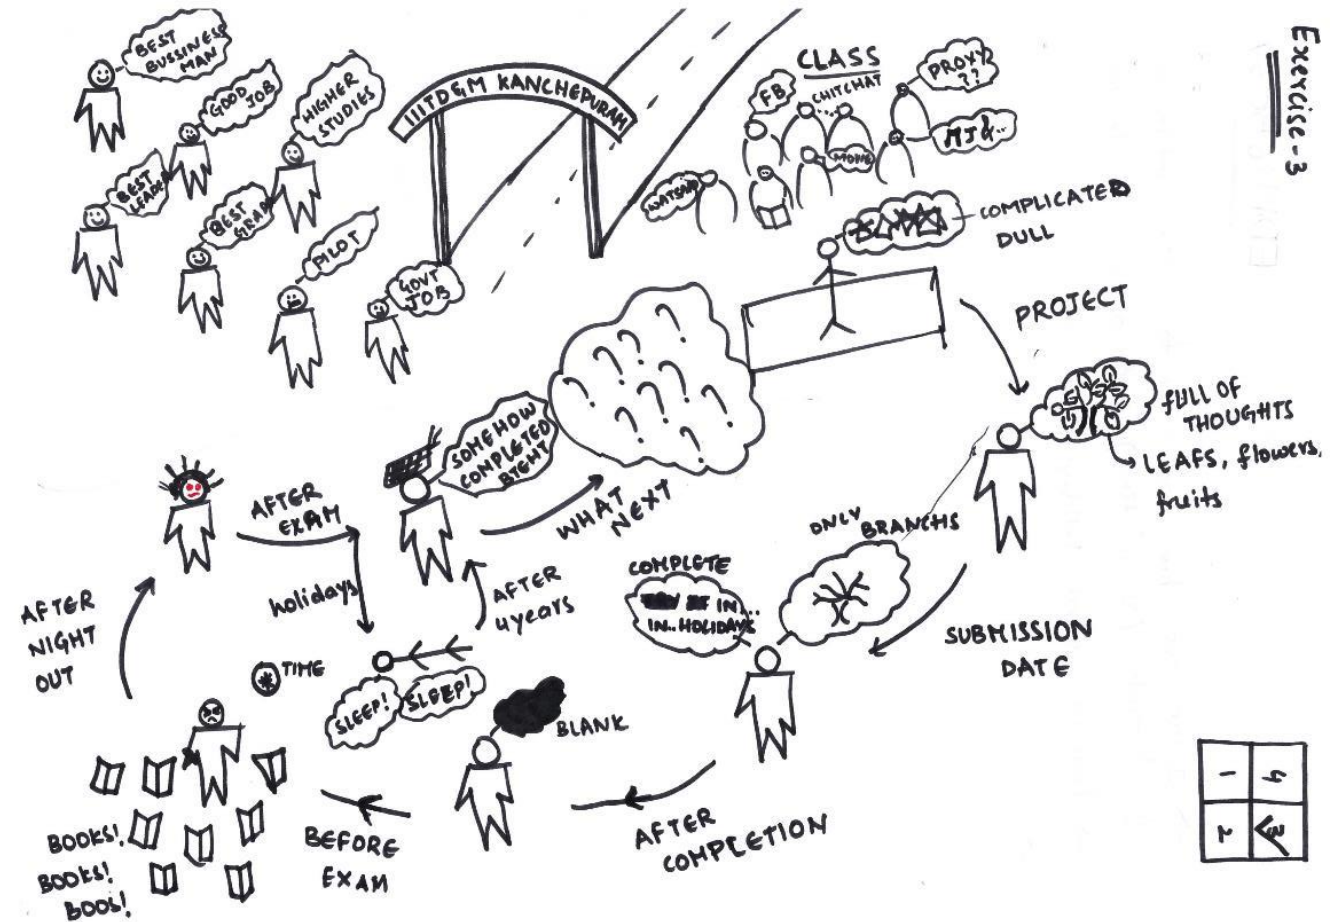 Exercise-3
BEST
BUSSINESS
MAN
GOOD
JOB
HIGHER
STUDIES
BEST
LEADER
BEST
GRAD
PILOT
GOVT
JOB
IIITD&M KANCHEPURAM
CLASS
CHITCHAT
FB
PROXY
??
MOVIE
COMPLICATED
DULL
PROJECT
FULL OF
THOUGHTS
LEAFS, flowers,
fruits
SUBMISSION
DATE
ONLY
BRANCHS
COMPLETE
IN...
IN..HOLIDAYS
AFTER
COMPLETION
BLANK
BEFORE
EXAM
BOOKS!
BOOKS!
BOOS!
TIME
AFTER
NIGHT
OUT
AFTER
EXAM
holidays
SLEEP!
SLEEP!
AFTER
4years
SOMEHOW
COMPLETED
WHAT
NEXT
? ? ? ? ? ? ? ? ? ?
1 4
2 3